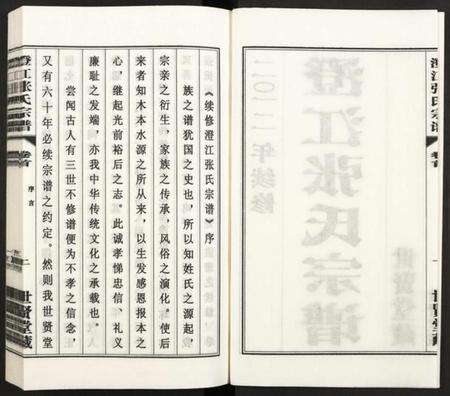 《续修澄江张氏宗谱》序
族之谱犹国之史也，所以知姓氏之源起，
宗亲之衍生，家族之传承，风俗之演化。使后
来者知木本水源之所从来，以生发感恩报本之
心，继起光前裕后之志。此诚孝悌忠信、礼义
廉耻之发端，亦我中华传统文化之承载也。
尝闻古人有三世不修谱便为不孝之信念，
又有六十年必续宗谱之约定。然则我世贤堂
澄江张氏宗谱
卷首
序言
二
世贤堂藏
澄江张氏宗谱
卷首
一
世贤堂藏
澄江张氏宗谱
二〇二二年续修
世贤堂藏